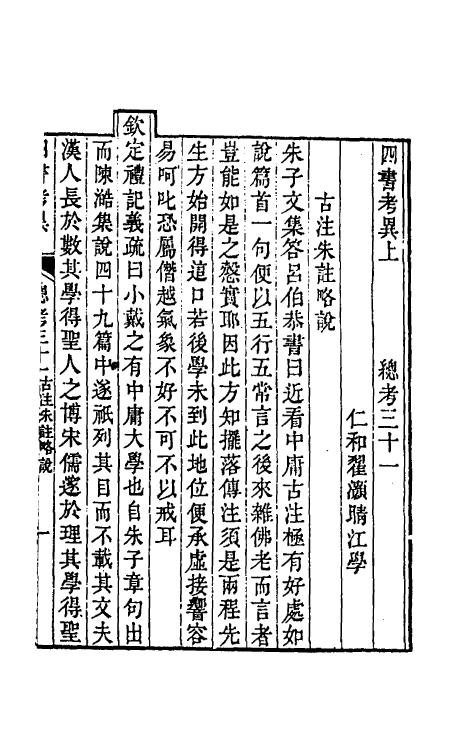 四書考異上　總考三十一
仁和翟灝晴江學
古注朱註略說
朱子文集答呂伯恭書曰近看中庸古注極有好處如
說篇首一句便以五行五常言之後來雜佛老而言者
豈能如是之慤實耶因此方知擺落傳注須是兩程先
生方始開得這口若後學未到此地位便承虛接響容
易呵叱恐屬僭越氣象不好不可不以戒耳
欽定禮記義疏曰小戴之有中庸大學也自朱子章句出
而陳澔集說四十九篇中遂祇列其目而不載其文夫
漢人長於數其學得聖人之博宋儒邃於理其學得聖
四書考異　總考三十一古注朱註略說　一